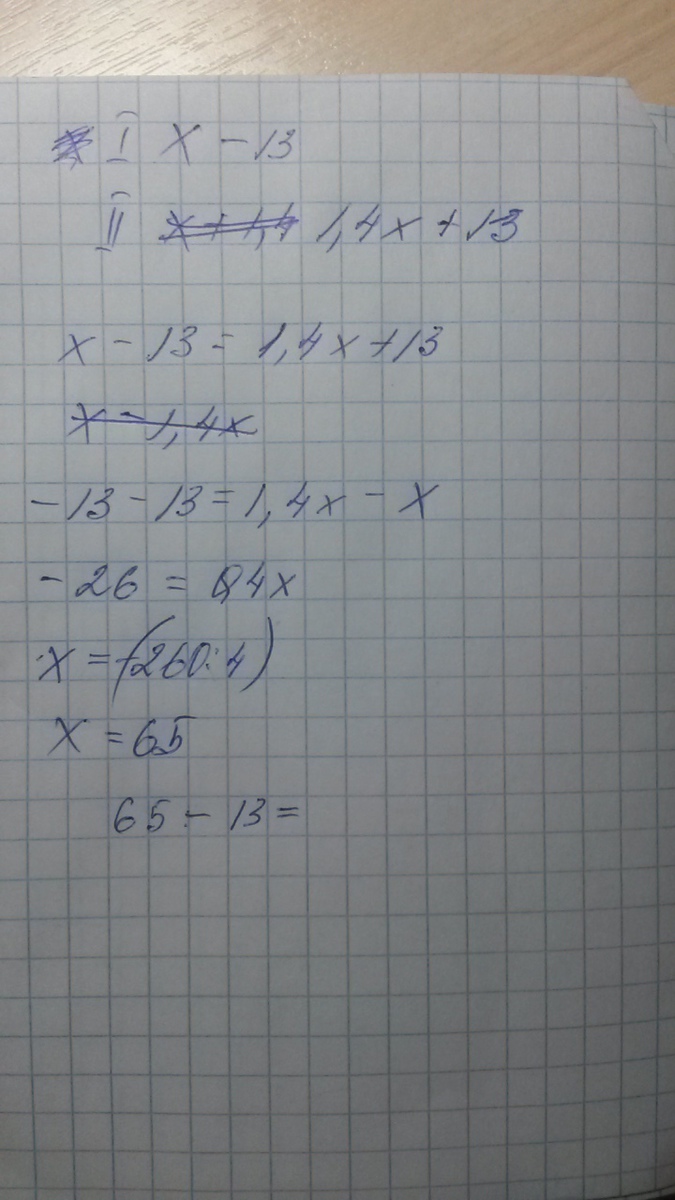 I x - 13
II x + 1,4 1,4x + 13
x - 13 = 1,4x + 13
x - 1,4x
- 13 - 13 = 1,4x - x
- 26 = 0,4x
x = (-260 : 4)
x = 65
65 - 13 =